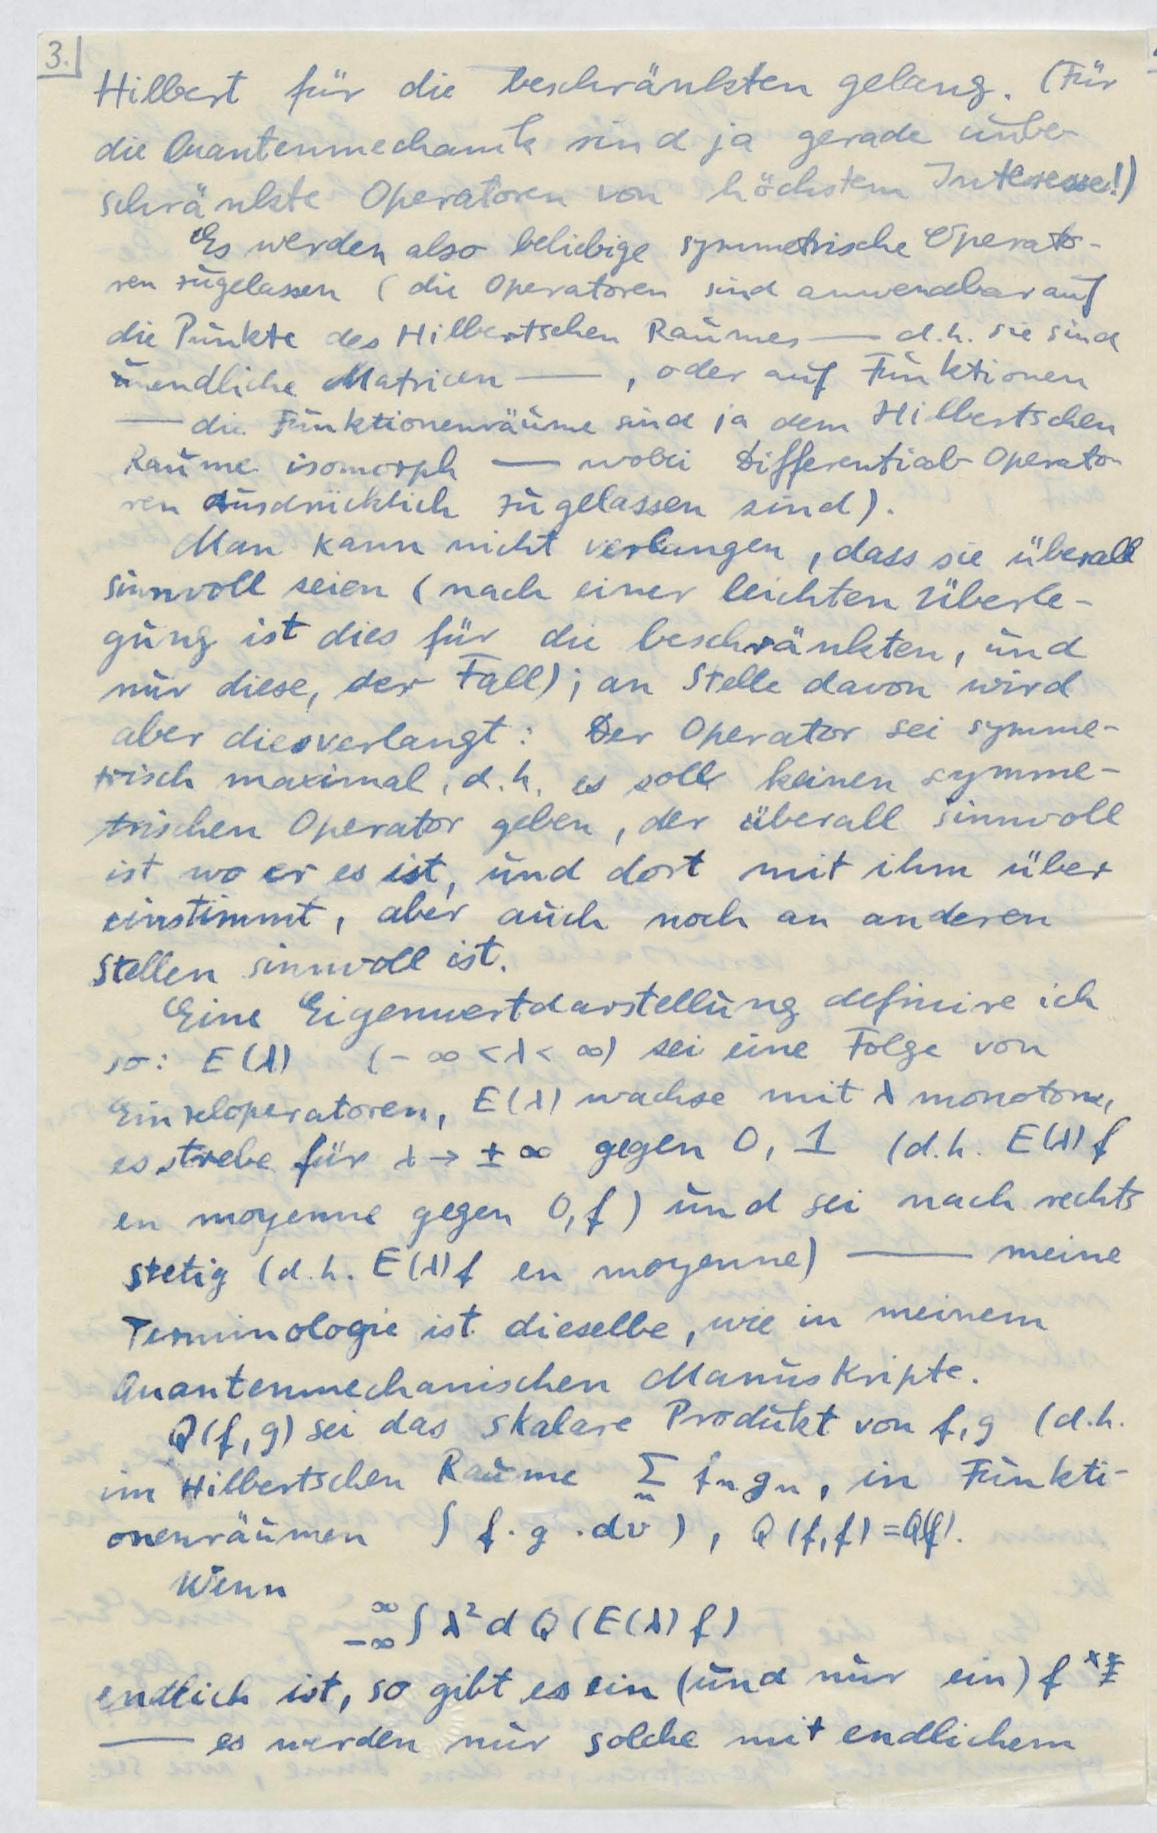 3.
Hilbert für die beschränkten gelang. (Für
die Quantenmechanik sind ja gerade unbe-
schränkte Operatoren von höchstem Interesse!)
Es werden also beliebige symmetrische Operato-
ren zugelassen (die Operatoren sind anwendbar auf
die Punkte des Hilbertschen Raumes — d.h. sie sind
unendliche Matricen — , oder auf Funktionen
— die Funktionenräume sind ja dem Hilbertschen
Raume isomorph — wobei Differential-Operato-
ren ausdrücklich zugelassen sind).
Man kann nicht verlangen, dass sie überall
sinnvoll seien (nach einer leichten Überle-
gung ist dies für die beschränkten, und
nur diese, der Fall); an Stelle davon wird
aber dies verlangt: Der Operator sei symme-
trisch maximal, d.h. es soll keinen symme-
trischen Operator geben, der überall sinnvoll
ist wo er es ist, und dort mit ihm über
einstimmt, aber auch noch an anderen
Stellen sinnvoll ist.
Eine Eigenwertdarstellung definire ich
so: E(λ) (-∞<λ<∞) sei eine Folge von
Einzeloperatoren, E(λ) wachse mit λ monoton,
es strebe für λ→±∞ gegen 0, 1 (d.h. E(λ)f
en moyenne gegen 0,f) und sei nach rechts
stetig (d.h. E(λ)f en moyenne) — meine
Terminologie ist dieselbe, wie in meinem
Quantenmechanischen Manuskripte.
Q(f,g) sei das skalare Produkt von f,g (d.h.
im Hilbertschen Raume Σₙ fₙgₙ, in Funkti-
onenräumen ∫ f·g·dv), Q(f,f)=Q(f).
Wenn
∞ -∞ ∫ λ² d Q(E(λ)f)
endlich ist, so gibt es ein (und nur ein) f
— es werden nur solche mit endlichem